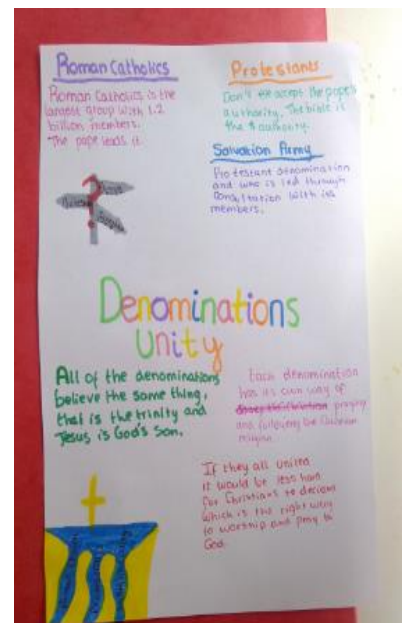 Roman Catholics
Roman Catholics is the
largest group with 1.2
billion members.
The pope leads it.
Protestants
Don't accept the pope's
authority. The bible is
the authority.
Salvation Army
Protestant denomination
and who is led through
consultation with its
members.
Denominations
Unity
All of the denominations
believe the same thing,
that is the trinity and
Jesus is God's Son.
Each denomination
has its own way of
praying
and following the Christian
religion.
If they all united
it would be less hard
for Christians to
which is the right way
to worship and pray to
God.